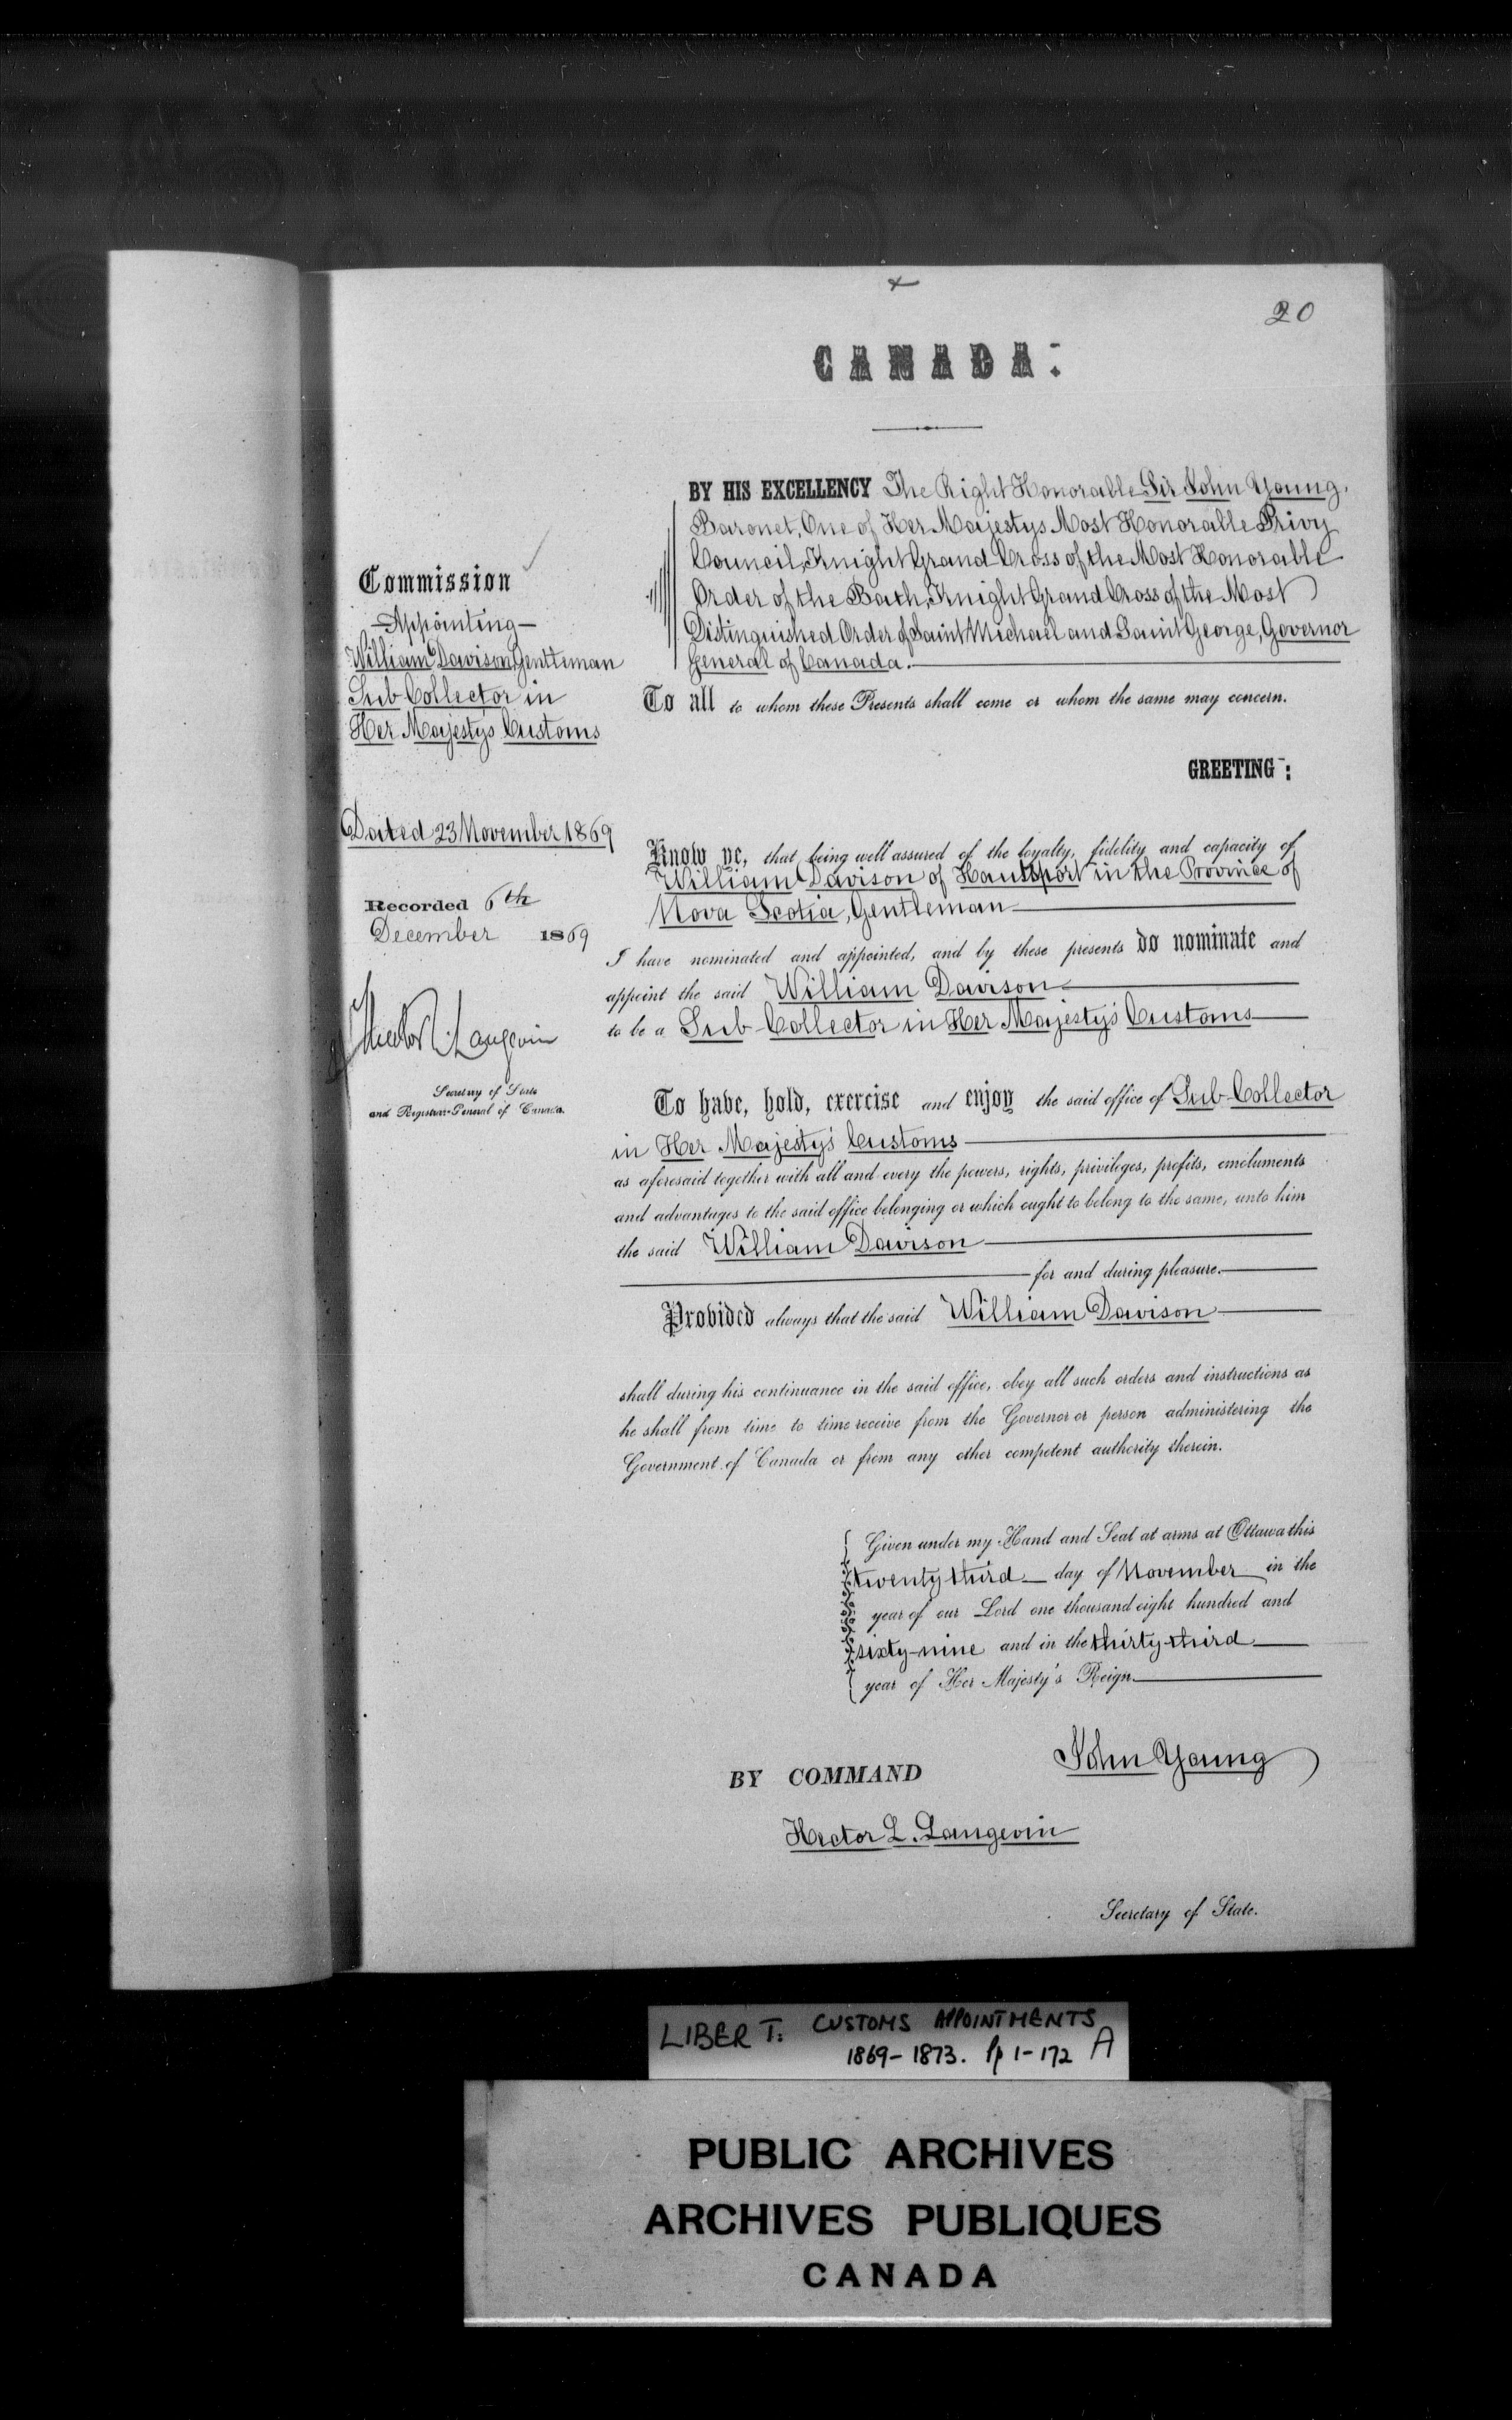 20
CANADA:
BY HIS EXCELLENCY The Right Honorable Sir John Young,
Baronet, One of Her Majestys Most Honorable Privy
Council, Knight Grand Cross of the Most Honorable
Order of the Bath, Knight Grand Cross of the Most
Distinguished Order of Saint Michael and Saint George, Governor
General of Canada.
To all to whom these Presents shall come or whom the same may concern.
GREETING:
Commission
Appointing
William Davison, Gentleman
Sub Collector in
Her Majestys Customs
Dated 23 November 1869
Recorded 6th
December 1869
Hector L. Langevin
Secretary of State
and Registrar-General of Canada.
Know ye, that being well assured of the loyalty, fidelity and capacity of
William Davison of Hantsport in the Province of
Nova Scotia, Gentleman
I have nominated and appointed, and by these presents do nominate and
appoint the said William Davison
to be a Sub-Collector in Her Majesty's Customs
To have, hold, exercise and enjoy the said office of Sub-Collector
in Her Majesty's Customs
as aforesaid together with all and every the powers, rights, privileges, profits, emoluments
and advantages to the said office belonging or which ought to belong to the same, unto him
the said William Davison
for and during pleasure.
Provided always that the said William Davison
shall during his continuance in the said office, obey all such orders and instructions as
he shall from time to time receive from the Governor or person administering the
Government of Canada or from any other competent authority therein.
Given under my Hand and Seal at arms at Ottawa this
twenty third day of November in the
year of our Lord one thousand eight hundred and
sixty-nine and in the thirty-third
year of Her Majesty's Reign.
John Young
BY COMMAND
Hector L. Langevin
Secretary of State.
LIBER T: CUSTOMS APPOINTMENTS
1869-1873. pp 1-172 A
PUBLIC ARCHIVES
ARCHIVES PUBLIQUES
CANADA